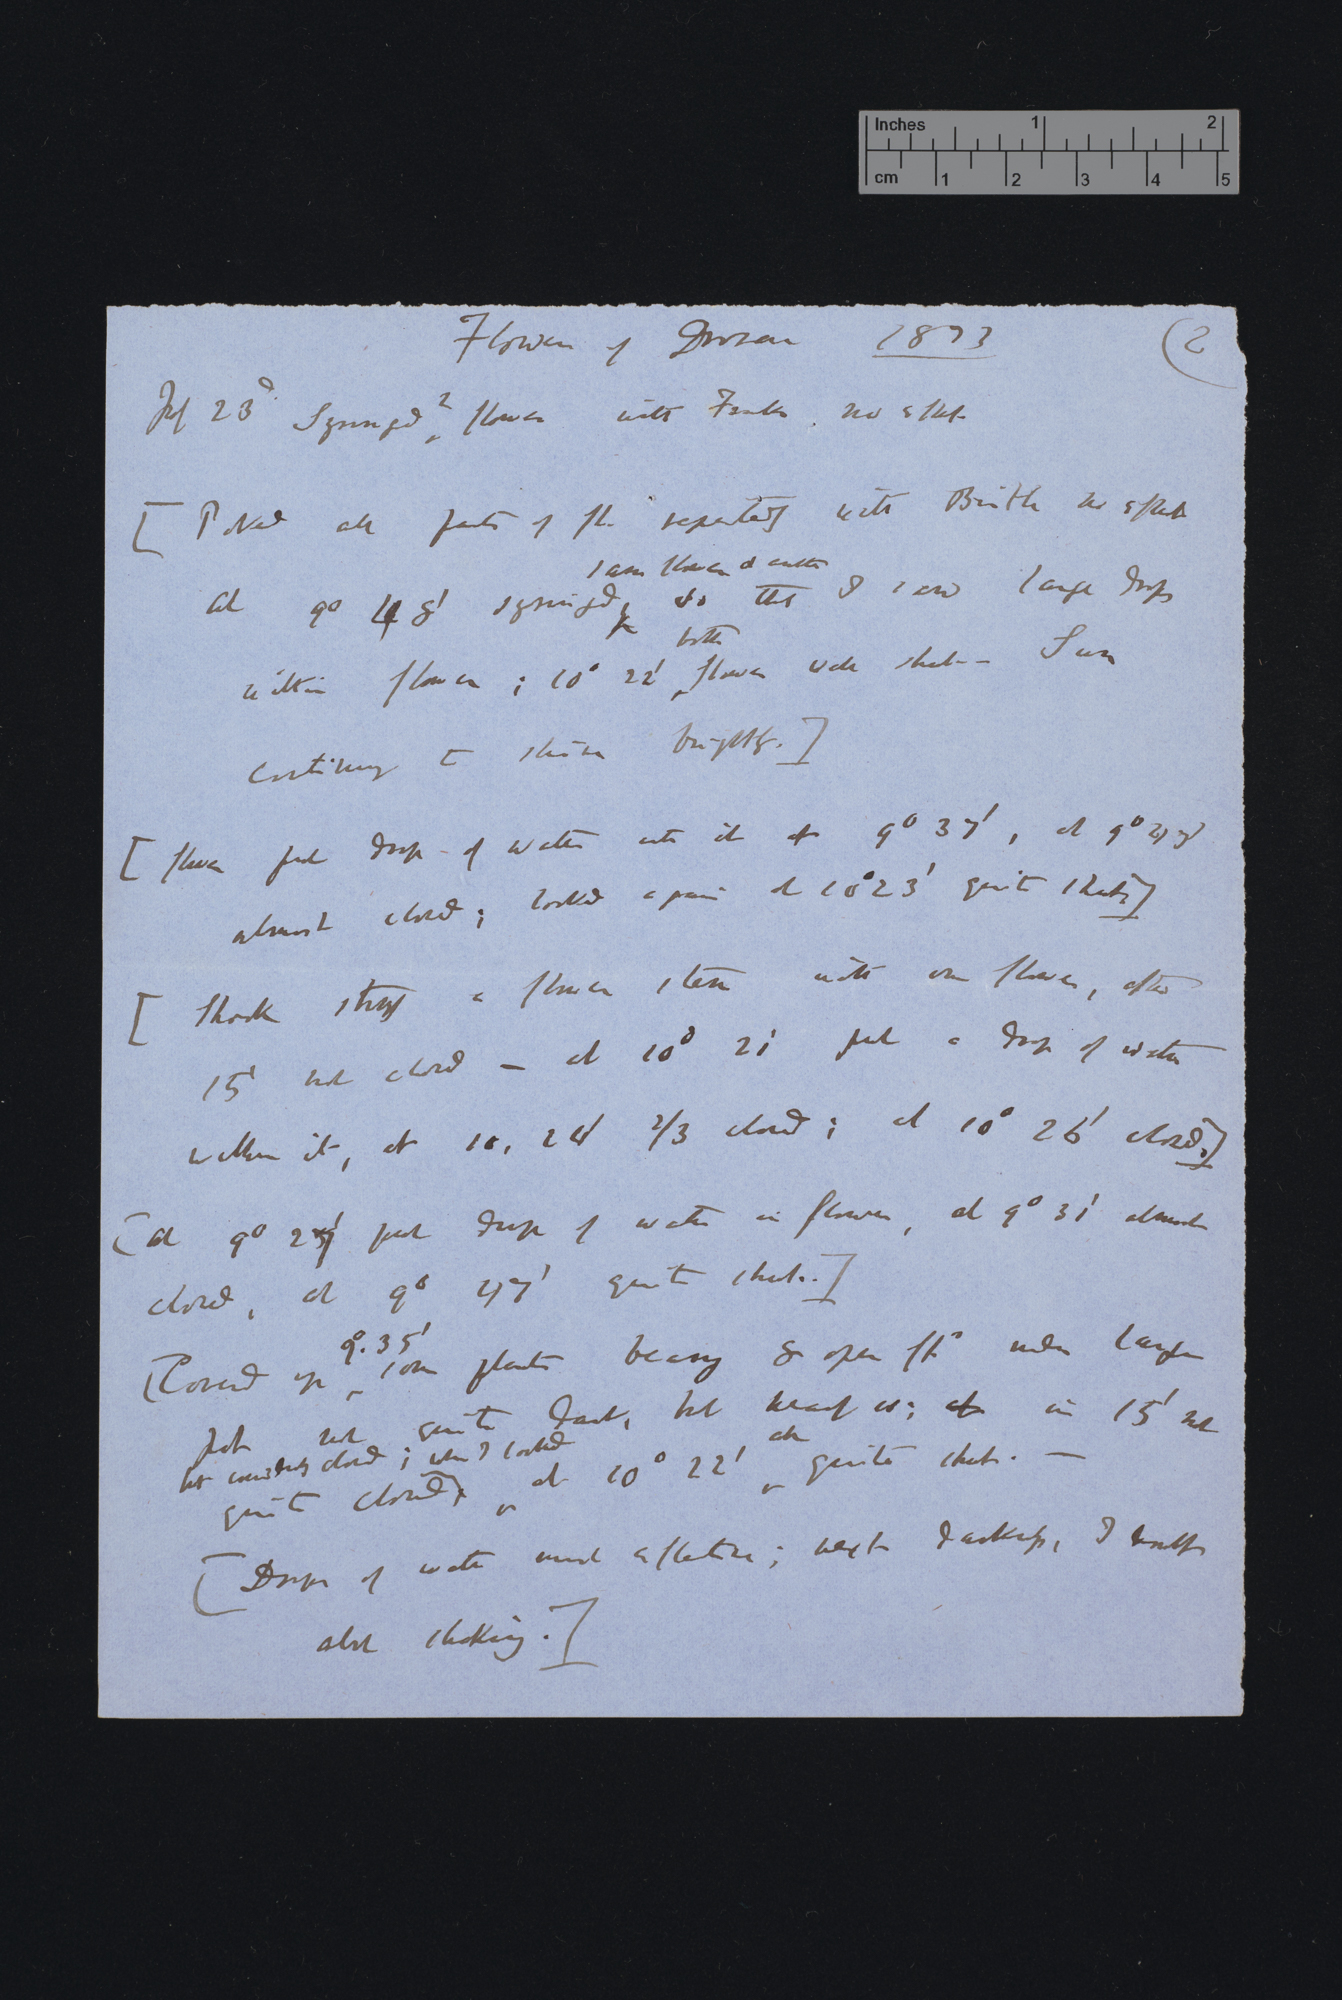 Inches 1 2
cm 1 2 3 4 5
Flowers of Drosera 1873 (2
July 23d Syringed 2 flowers with no effect
[ Poked all parts of fl. repeatedly with Bristle no effect
same flower & another
At 9° 48' syringed so that I saw large drops
both
within flower ; 10° 22' flowers were shut — Sun
continuing to shine brightly.]
[ flower put drop of water into it at 9° 37', at 9° 47'
almost closed ; looked again at 10° 23' quite shut]
[ Shook strongly a flower stem with one flower, after
15' not closed — at 10° 21' put a drop of water
within it, at 10, 24' 2/3 closed ; at 10° 26' closed.]
[At 9° 25' put drop of water in flower, at 9° 31' almost
closed, at 9° 47' quite shut.]
9°. 35'
[Covered up some plants bearing 8 open fls under large
pot not quite dark, but nearly so; in 15' not
but considerably closed ; when I looked all
quite closed, at 10° 22' quite shut. —
[Drops of water most effective ; next darkness, I doubt
about shaking.]